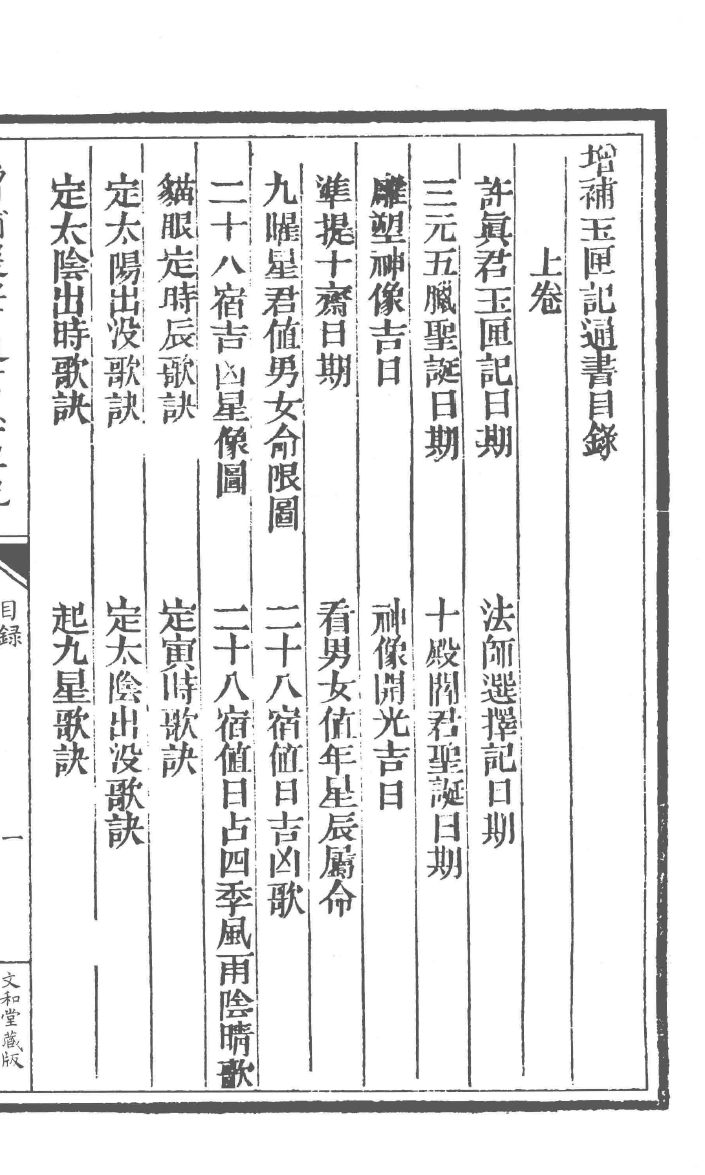 增補玉匣記通書目錄
上卷
許眞君玉匣記日期　法師選擇記日期
三元五臘聖誕日期　十殿閻君聖誕日期
雕塑神像吉日　神像開光吉日
準提十齋日期　看男女值年星辰屬命
九曜星君值男女命限圖　二十八宿值日吉凶歌
二十八宿吉凶星像圖　二十八宿值日占四季風雨陰晴歌
貓眼定時辰歌訣　定寅時歌訣
定太陽出没歌訣　定太陰出没歌訣
定太陰出時歌訣　起九星歌訣
目録
一
文和堂藏版